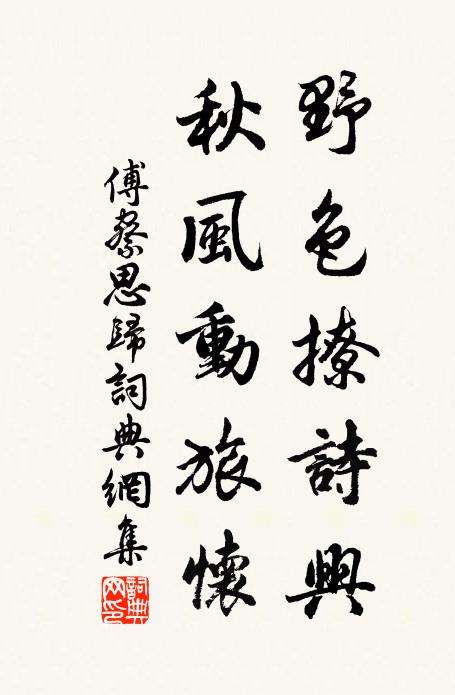 野色撩詩興
秋風動旅懷
傅察思歸詞典網集
詞典網印